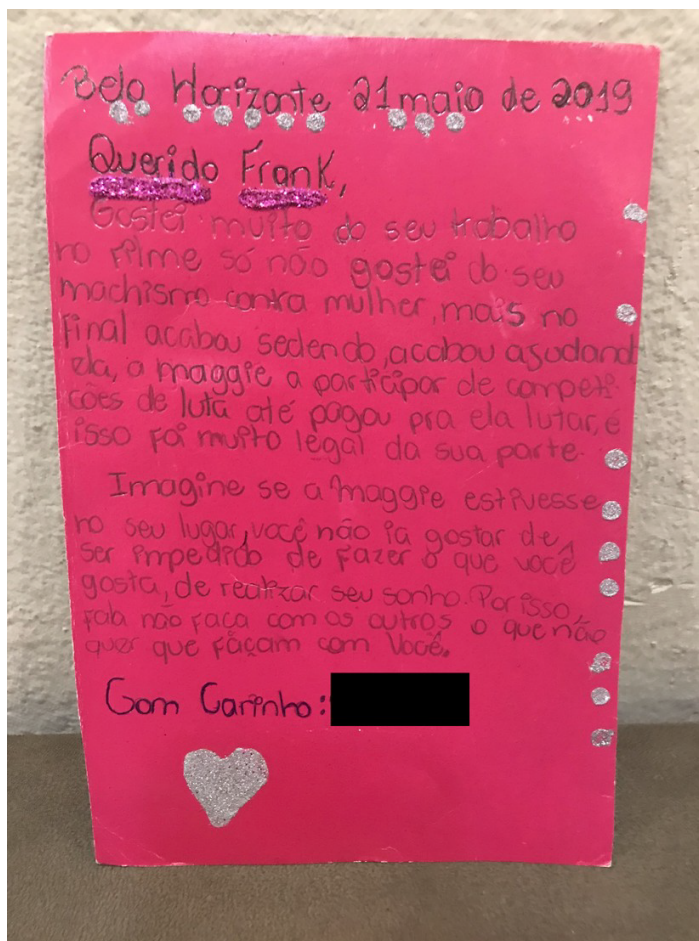 Belo Horizonte 21 maio de 2019
Querido Frank,
Gostei muito do seu trabalho
no filme só não gostei do seu
machismo contra mulher, mais no
final acabou sedendo, acabou ajudando
ela, a maggie a participar de competi-
ções de luta até pagou pra ela lutar, é
isso foi muito legal da sua parte.
Imagine se a maggie estivesse
no seu lugar, você não ia gostar de
ser impedido de fazer o que você
gosta, de realizar seu sonho. Por isso,
fala não faça com os outros o que não
quer que façam com Você.
Com Carinho: